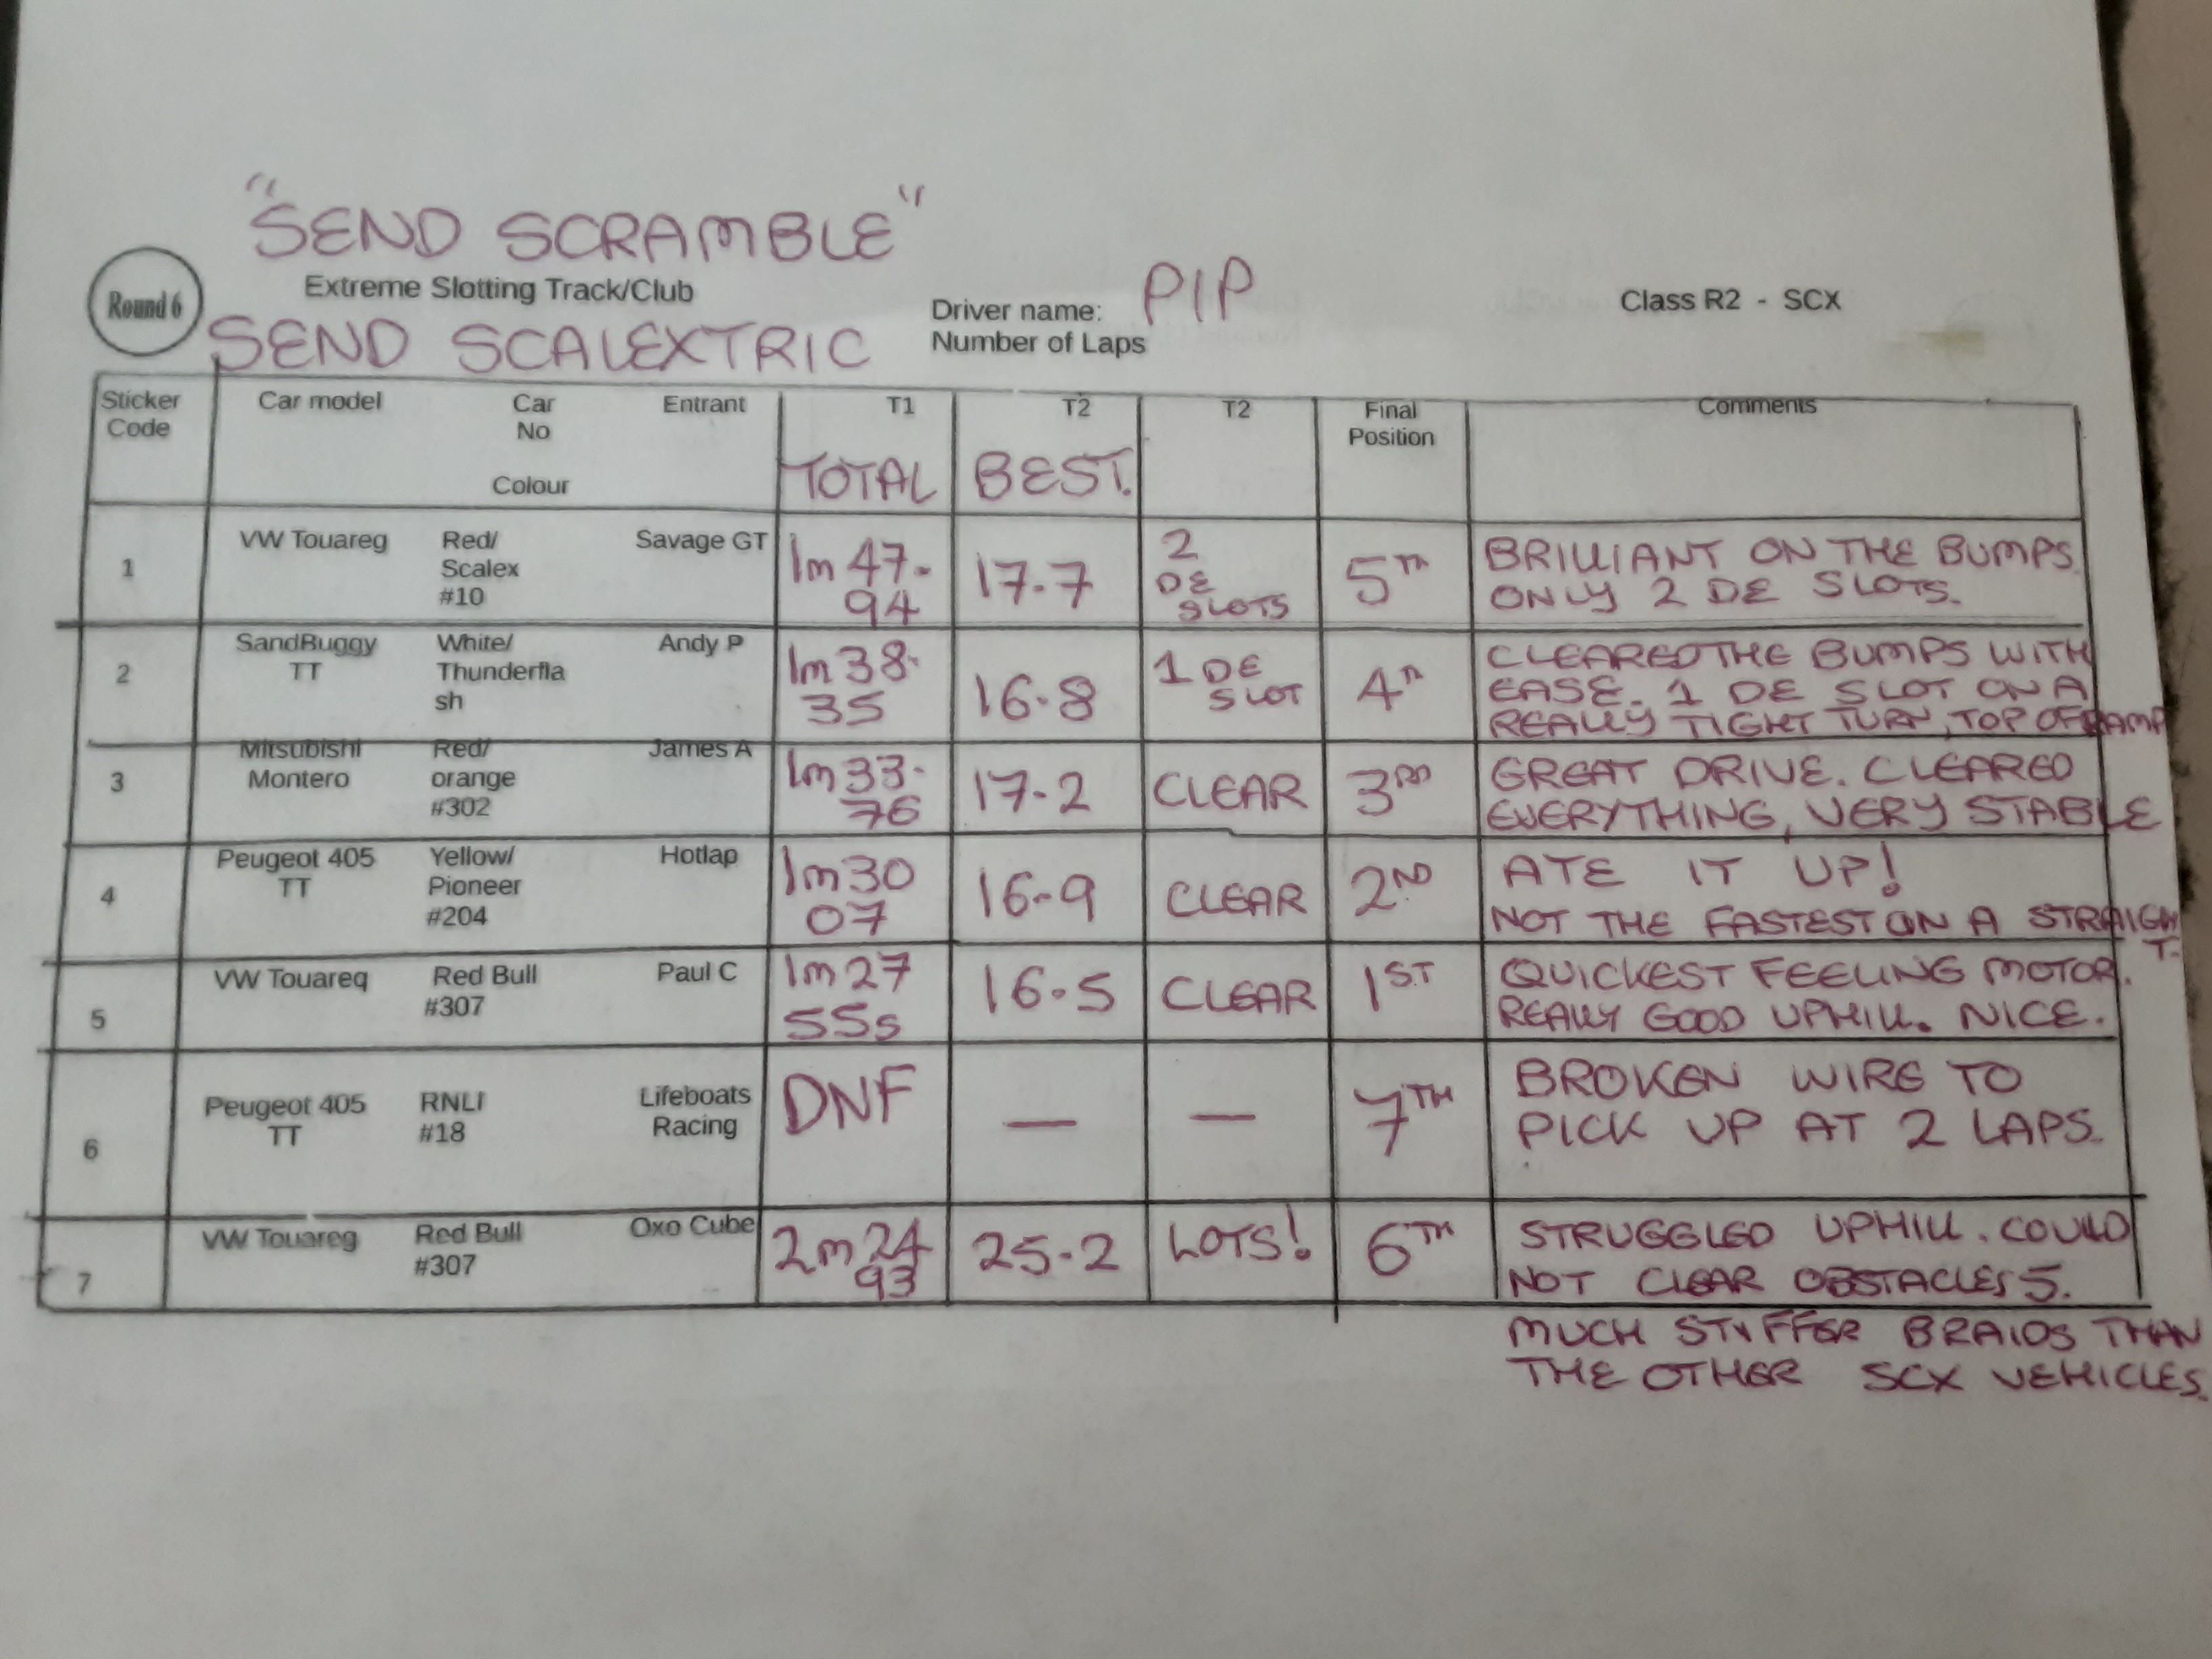 "SEND SCRAMBLE"
Round 6
Extreme Slotting Track/Club
Driver name: PIP
Class R2 - SCX
SEND SCALEXTRIC
Number of Laps
Sticker Code
Car model
Car No
Colour
Entrant
T1
TOTAL
T2
BEST.
T2
Final Position
Comments
1
VW Touareg
Red/
Scalex
#10
Savage GT
1m 47.
94
17.7
2
DE
SLOTS
5TH
BRILLIANT ON THE BUMPS.
ONLY 2 DE SLOTS.
2
SandBuggy
TT
White/
Thunderfla
sh
Andy P
1m 38.
35
16.8
1 DE
SLOT
4TH
CLEARED THE BUMPS WITH
EASE. 1 DE SLOT ON A
REALLY TIGHT TURN, TOP OF RAMP
3
Mitsubishi
Montero
Red/
orange
#302
James A
1m 33.
76
17.2
CLEAR
3RD
GREAT DRIVE. CLEARED
EVERYTHING, VERY STABLE
4
Peugeot 405
TT
Yellow/
Pioneer
#204
Hotlap
1m 30
07
16.9
CLEAR
2ND
ATE IT UP!
NOT THE FASTEST ON A STRAIGH
T.
5
VW Touareq
Red Bull
#307
Paul C
1m 27
55s
16.5
CLEAR
1ST
QUICKEST FEELING MOTOR.
REALLY GOOD UPHILL. NICE.
6
Peugeot 405
TT
RNLI
#18
Lifeboats
Racing
DNF
—
—
7TH
BROKEN WIRE TO
PICK UP AT 2 LAPS.
7
VW Touareg
Red Bull
#307
Oxo Cube
2m 24
93
25.2
LOTS!
6TH
STRUGGLED UPHILL. COULD
NOT CLEAR OBSTACLES 5.
MUCH STIFFER BRAIDS THAN
THE OTHER SCX VEHICLES.